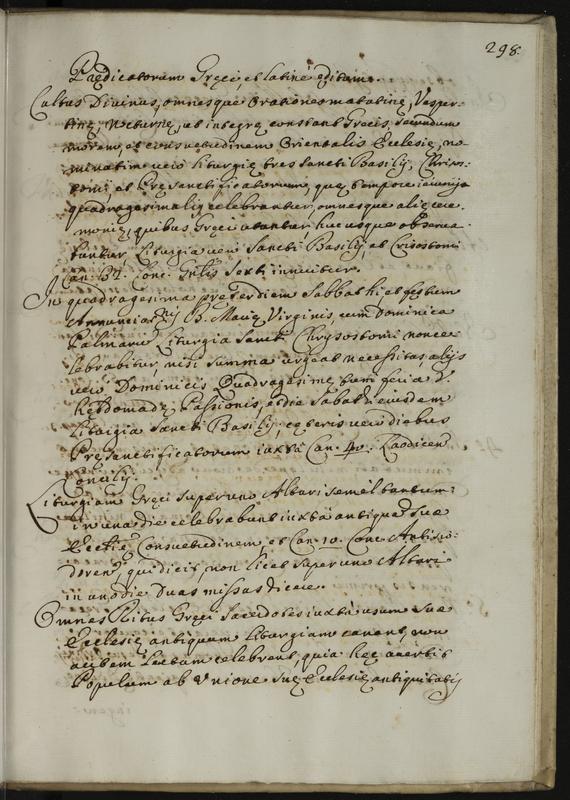 298.
Prędicatorum Gręcè, et latinè editam.
Cultus Divinus, omnesquè orationes matutinę, Vesper-
tinę, nocturnę, ut integrę constant Gręcis, secundum
morem, et consuetudinem Orientalis Ecclesię, no-
minatim verò liturgię tres Sancti Basilij, Chrisos-
tomi, et Pręsanctificatorum, quę tempore ieiunij
quadragesimalis celebrantur, omnesque alię cere-
monię, quibus Gręci utuntur, hucusque observa-
buntur, Liturgia verò Sancti Basilij, et Crisostomi
Can: 32. Conc: Gnlis Sexti innuitur.
In quadragesima pręter diem Sabbathi, et festum
Annunciatnis B. Marię Virginis, cum Dominica
Palmarum Liturgia Sancti Chrysostomi non ce-
lebrabitur, nisi summa urgeat necessitas, alijs
verò Dominicis Quadragesimę, tum feria V.
Hebdomadę Passionis, et die Sabathi eiusdem
Liturgia Sancti Basilij; cęteris verò diebus
Pręsanctificatorum iuxta Can: 49. Laodicen
Concilij.
Liturgiam Gręci super uno Altari semel tantum
in una die celebrabunt iuxtà antiquã suę
Ecclię Consuetudinem et Can: 10. Conc: Antisio-
doren, qui dicit, non licet super uno Altari
in uno die duas missas dicere.
Omnes Ritus Gręci Sacerdotes iuxtà usum suę
Ecclesię antiquum liturgiam canent, non
autem lectam celebrent, quia hęc avertit
Populum ab Unione suę Ecclesię antiquitatis